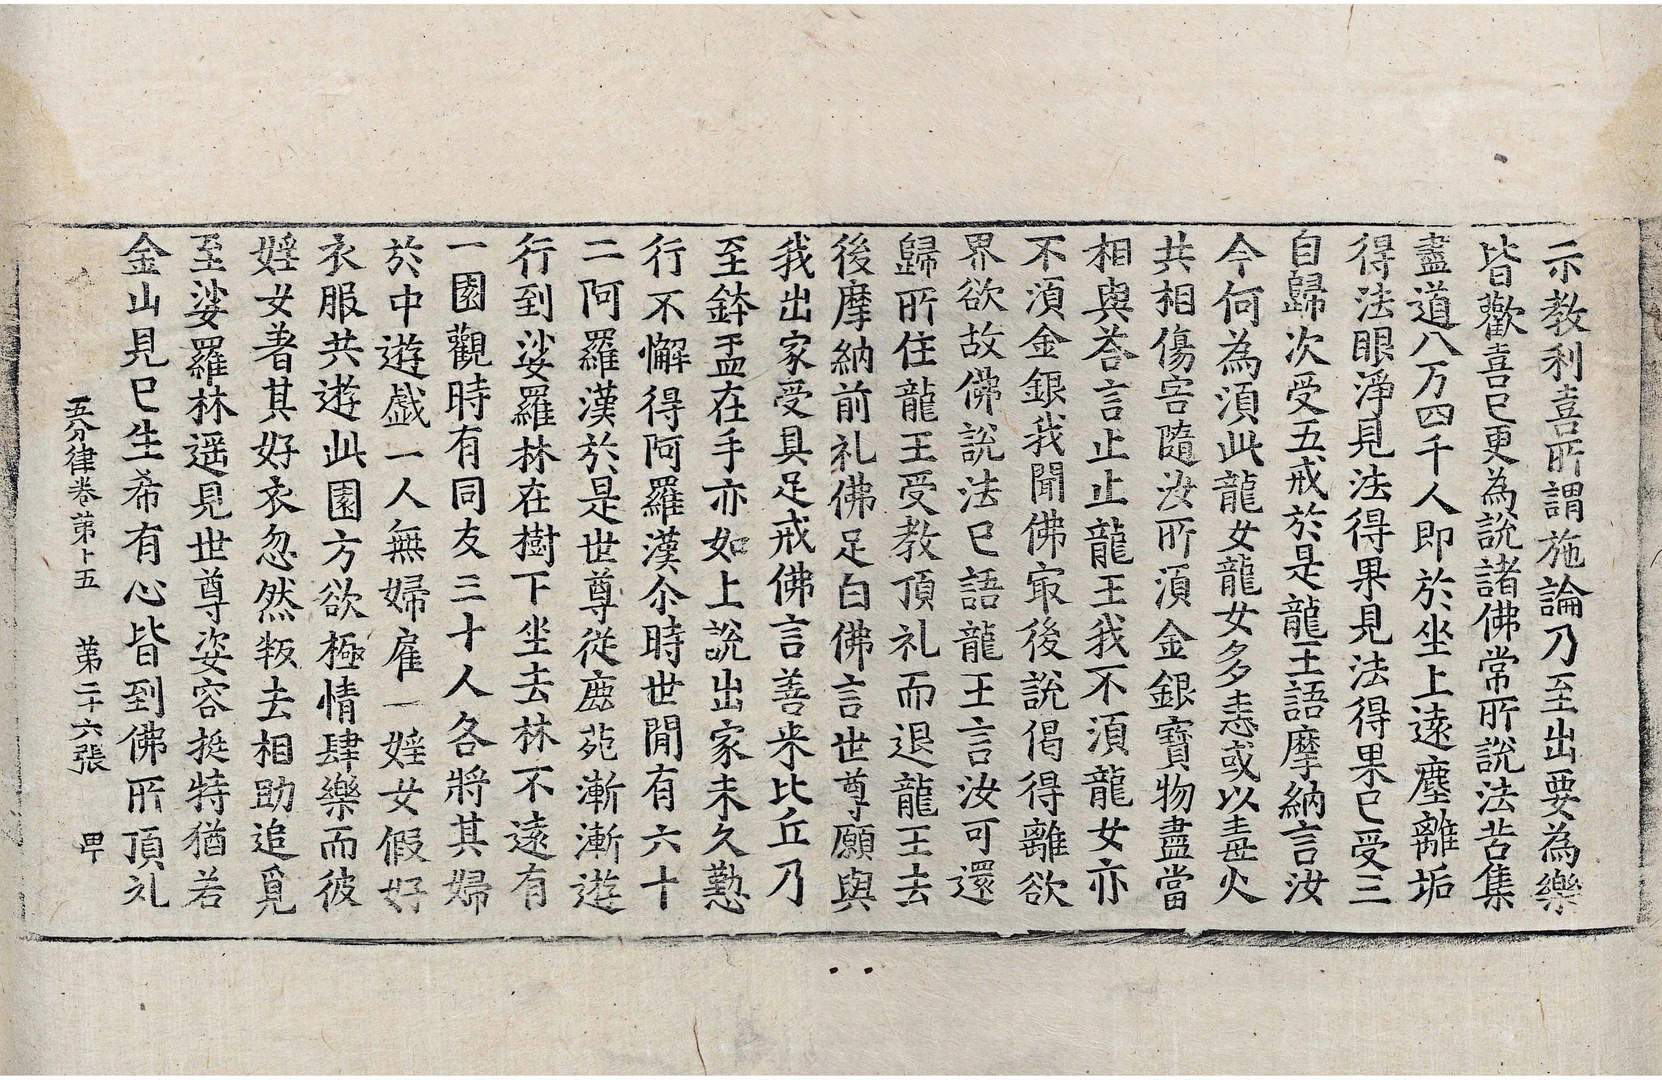 示教利喜所謂施論乃至出要為樂
皆歡喜已更為說諸佛常所說法苦集
盡道八万四千人即於坐上遠塵離垢
得法眼淨見法得果見法得果已受三
自歸次受五戒於是龍王語摩納言汝
今何為須此龍女龍女多恚或以毒火
共相傷害隨汝所須金銀寶物盡當
相與荅言止止龍王我不須龍女亦
不須金銀我聞佛㝡後說偈得離欲
界欲故佛說法已語龍王言汝可還
歸所住龍王受教頂礼而退龍王去
後摩納前礼佛足白佛言世尊願與
我出家受具足戒佛言善来比丘乃
至鉢盂在手亦如上說出家未久懃
行不懈得阿羅漢尒時世閒有六十
二阿羅漢於是世尊從鹿苑漸漸遊
行到娑羅林在樹下坐去林不遠有
一園觀時有同友三十人各將其婦
於中遊戲一人無婦雇一婬女假好
衣服共遊此園方欲極情肆樂而彼
婬女著其好衣忽然叛去相助追覓
至娑羅林遥見世尊姿容挺特猶若
金山見已生希有心皆到佛所頂礼
五分律卷第十五　第二十六張